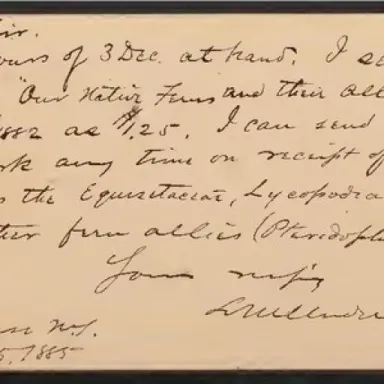 Sir.
ours of 3 Dec. at hand. I se
"Our Native Ferns and their all
1882 as $1.25. I can send
rk any time on receipt of
s the Equisetaceae, Lycopodia
ther fern allies (Pteridoph
Yours
N.Y.
5, 1885